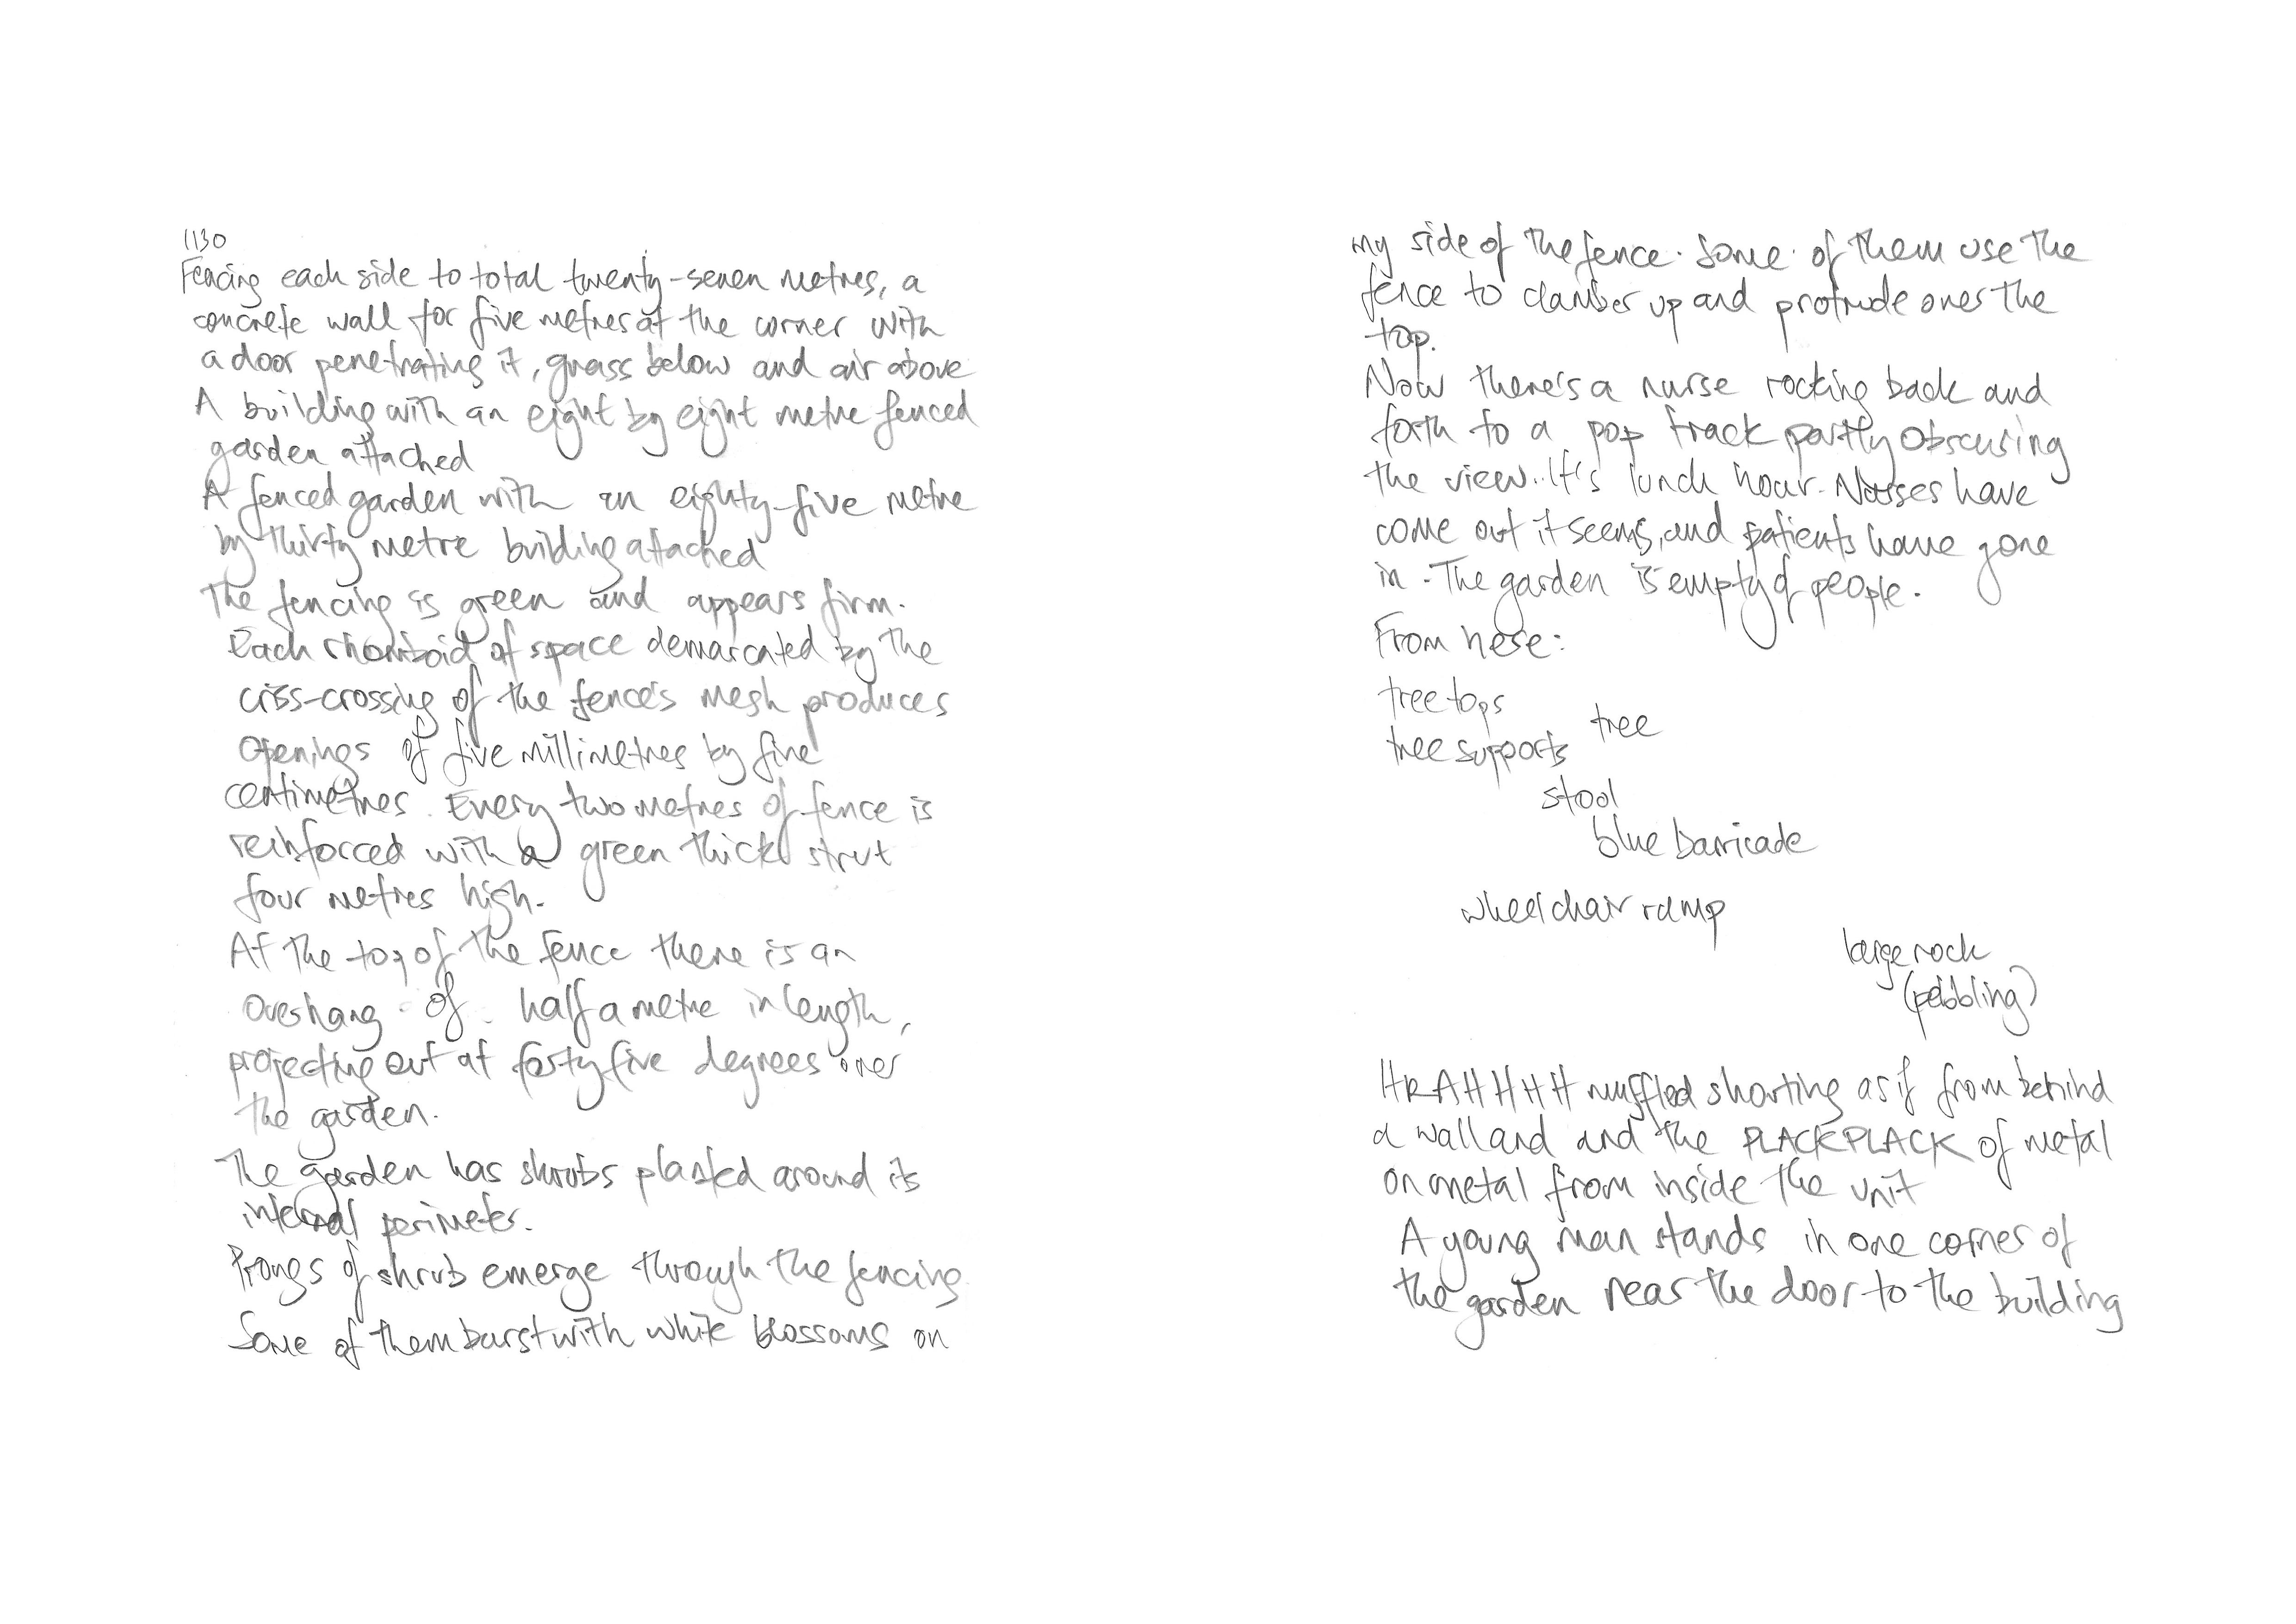 1130
Fencing each side to total twenty-seven metres, a
concrete wall for five metres at the corner with
a door penetrating it, grass below and air above
A building with an eight by eight metre fenced
garden attached
A fenced garden with an eighty-five metre
by thirty metre building attached
The fencing is green and appears firm.
Each rhomboid of space demarcated by the
criss-crossing of the fence's mesh produces
openings of five millimetres by five
centimetres. Every two metres of fence is
reinforced with a green thick strut
four metres high.
At the top of the fence there is an
overhang of half a metre in length,
projecting out at forty five degrees over
the garden.
The garden has shrubs planted around its
internal perimeter.
Prongs of shrub emerge through the fencing.
Some of them burst with white blossoms on
my side of the fence. Some of them use the
fence to clamber up and protrude over the
top.
Now there's a nurse rocking back and
forth to a pop track partly obscuring
the view. It's lunch hour. Nurses have
come out it seems, and patients have gone
in. The garden is empty of people.
From here:
treetops
tree
tree supports
stool
blue barricade
wheelchair ramp
large rock
(pebbling)
HRAHHHH muffled shouting as if from behind
a wall and and the PLACKPLACK of metal
on metal from inside the unit
A young man stands in one corner of
the garden near the door to the building